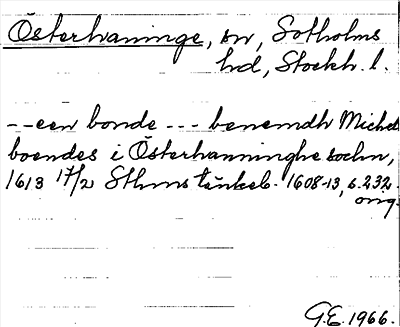 Österhaninge, sn, Sotholms
hd, Stockh. l.
-- een bonde --- benemdh Michel
boendes i Österhanninghe sochn,
1613 17/2 Sthms tänkeb. 1608-13, s. 232.
orig.
G.E. 1966.